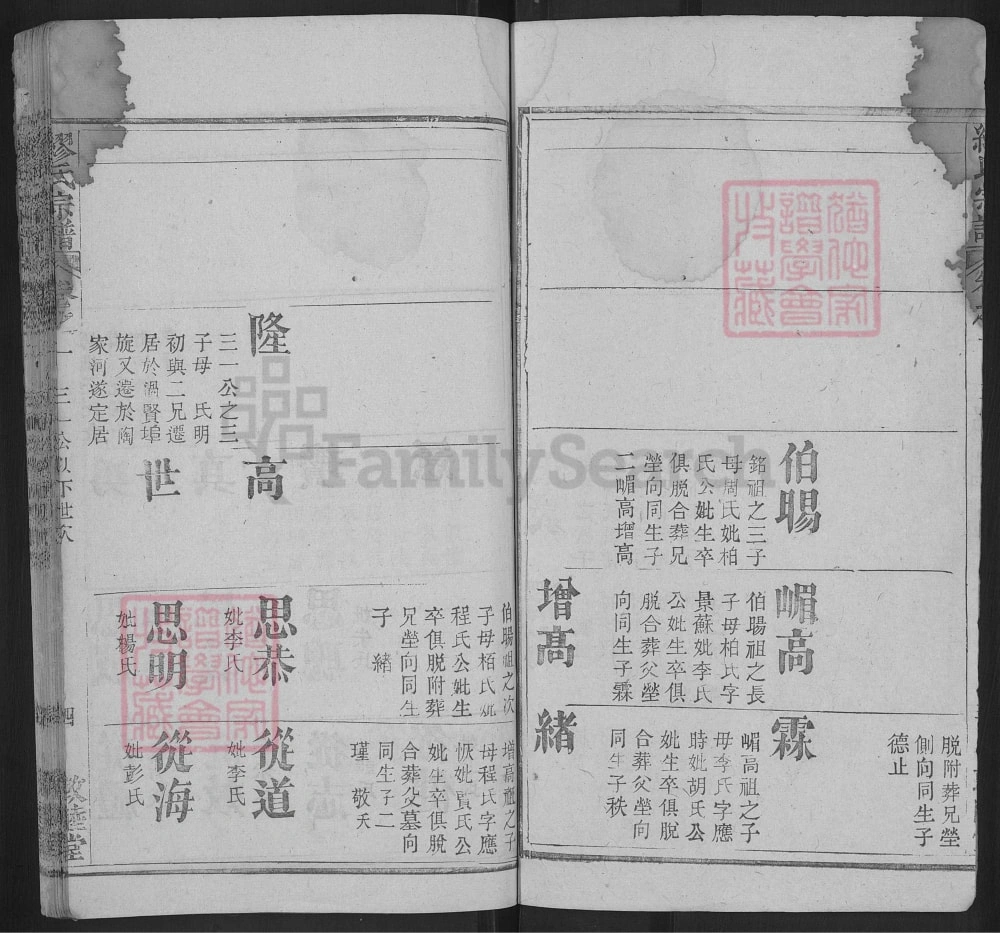 脫附葬兄塋
側向同生子
德止
伯暘
銘祖之三子
母周氏妣柏
氏公妣生卒
俱脫合葬兄
塋向同生子
二嵋高增高
嵋高
伯暘祖之長
子母柏氏字
景蘇妣李氏
公妣生卒俱
脫合葬父塋
向同生子霖
霖
嵋高祖之子
母李氏字應
時妣胡氏公
妣生卒俱脫
合葬父塋向
同生子秩
增高
伯暘祖之次
子母栢氏妣
程氏公妣生
卒俱脫附葬
兄塋向同生
子緒
緒
增高祖之子
母程氏字應
恢妣賈氏公
妣生卒俱脫
合葬父墓向
同生子二
瑾敬天
隆
三一公之三
子母 氏明
初與二兄遷
居於泗賢埠
旋又遷於陶
家河遂定居
高
思恭
妣李氏
從道
妣李氏
世
思明
妣楊氏
從海
妣彭氏
繆氏宗譜
三一公以下世次
四
FamilySearch
譜學會
收藏